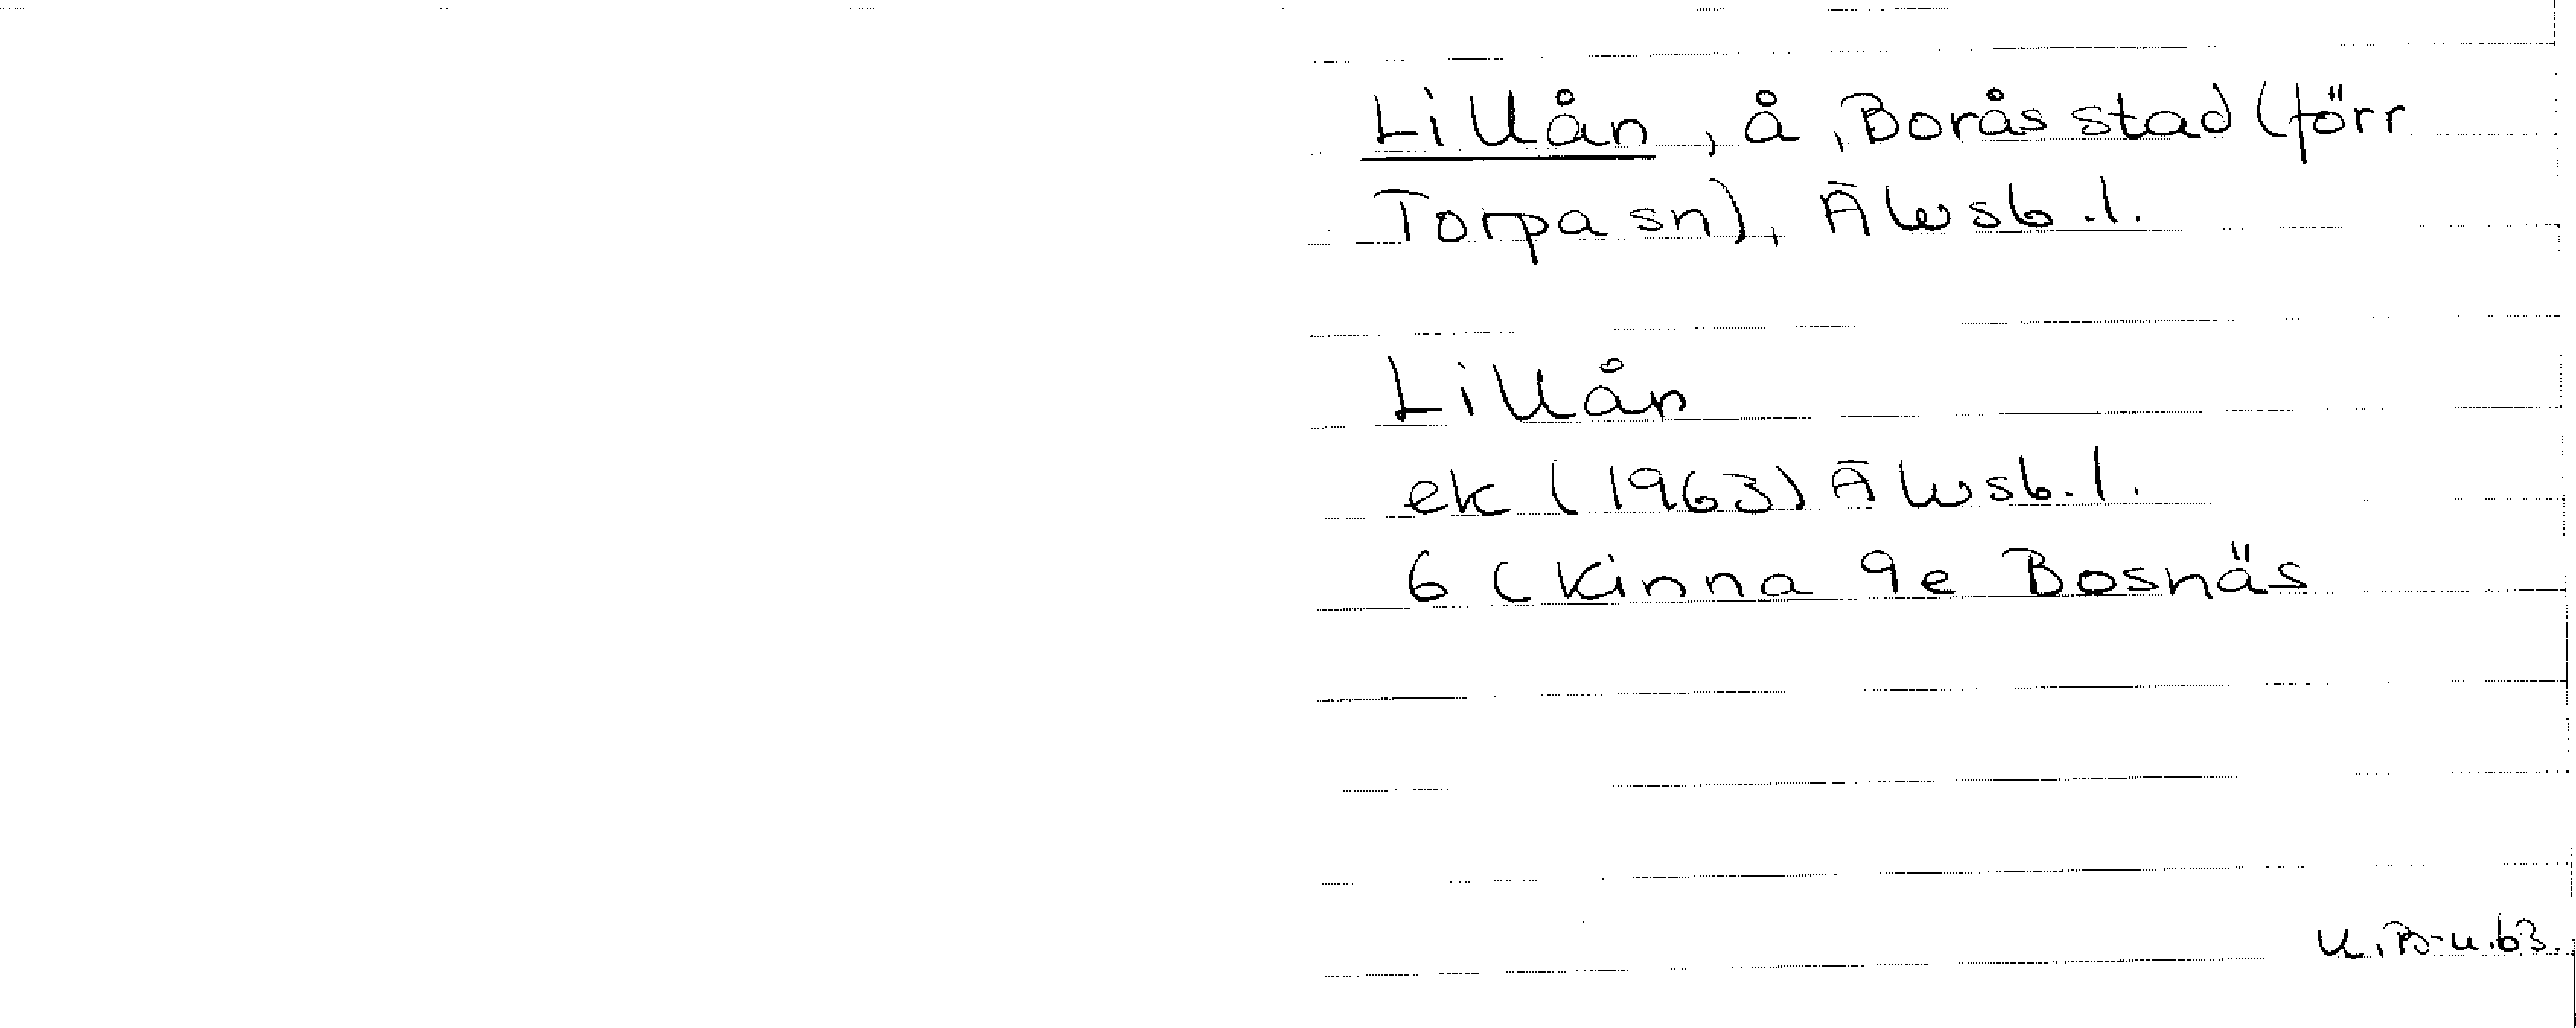 Lillån, å, Borås stad (förr
Torpa sn), Älvsb.l.
Lillån
ek (1963) Älvsb.l.
6 C Kinna 9e Bosnäs